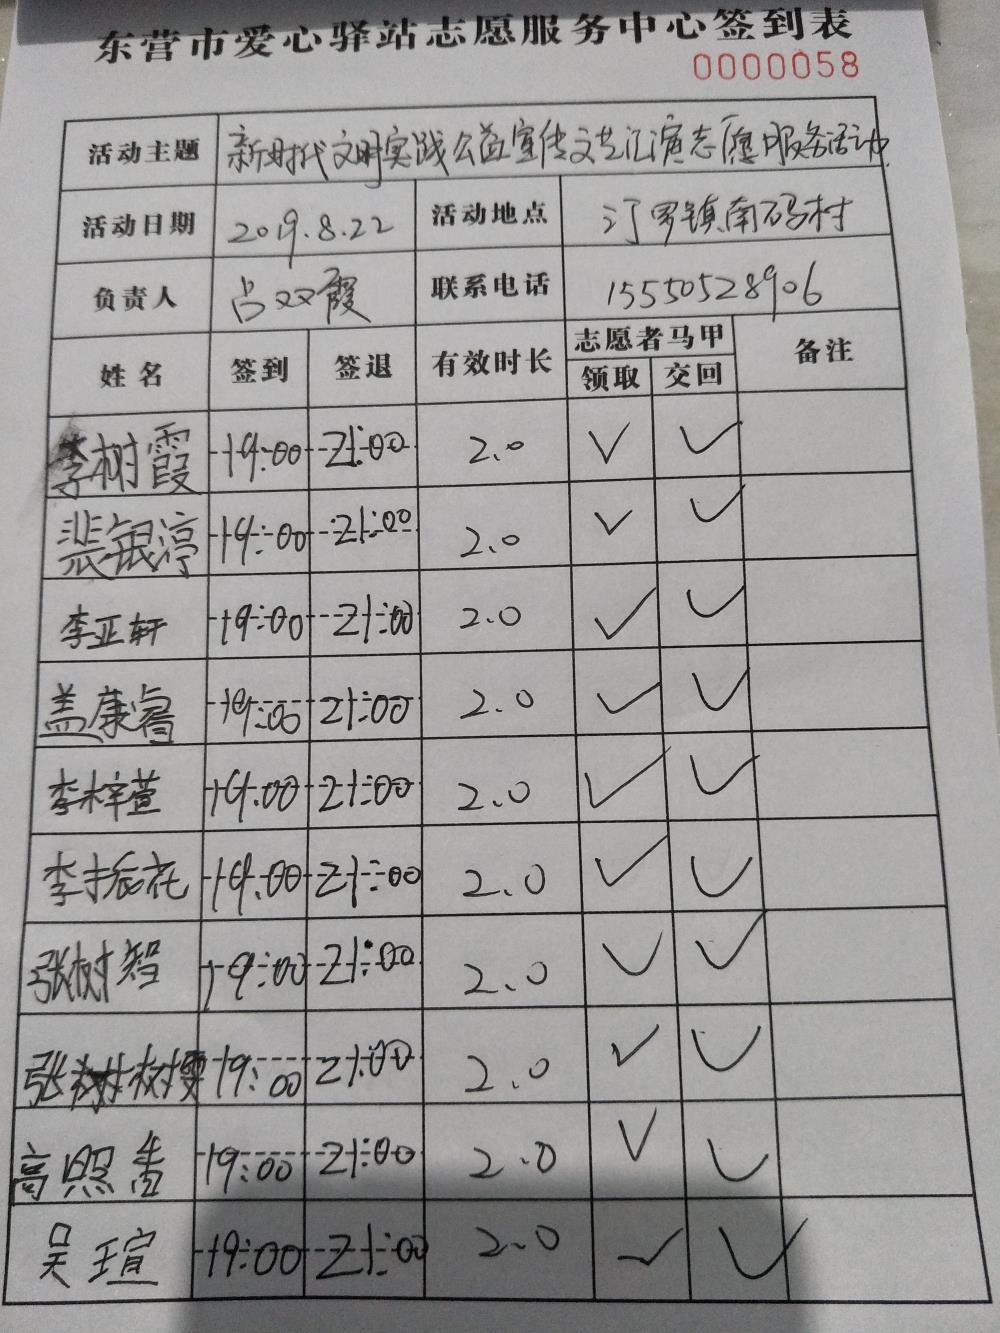 东营市爱心驿站志愿服务中心签到表
0000058
活动主题 新时代文明实践公益宣传文艺汇演志愿服务活动
活动日期 2019.8.22 活动地点 汀罗镇南码村
负责人 吕双霞 联系电话 15550528906
姓名 签到 签退 有效时长 志愿者马甲 备注
领取 交回
李树霞 19:00 21:00 2.0 ✓ ✓
裴银淳 19:00 21:00 2.0 ✓ ✓
李亚轩 19:00 21:00 2.0 ✓ ✓
盖康睿 19:00 21:00 2.0 ✓ ✓
李梓萱 19:00 21:00 2.0 ✓ ✓
李振花 19:00 21:00 2.0 ✓ ✓
张树智 19:00 21:00 2.0 ✓ ✓
张树 19:00 21:00 2.0 ✓ ✓
高照香 19:00 21:00 2.0 ✓ ✓
吴瑄 19:00 21:00 2.0 ✓ ✓